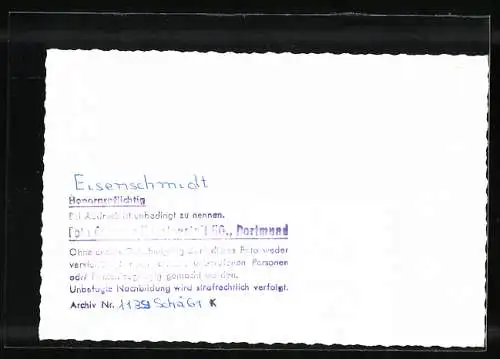 Eisenschmidt
Honorarpflichtig
Bei Abdruck ist unbedingt zu nennen.
KG., Dortmund
Ohne unsere darf dieses Foto weder
unberufenen Personen
oder gemacht werden.
Unbefugte Nachbildung wird strafrechtlich verfolgt.
Archiv Nr. 1139 SchäGt K